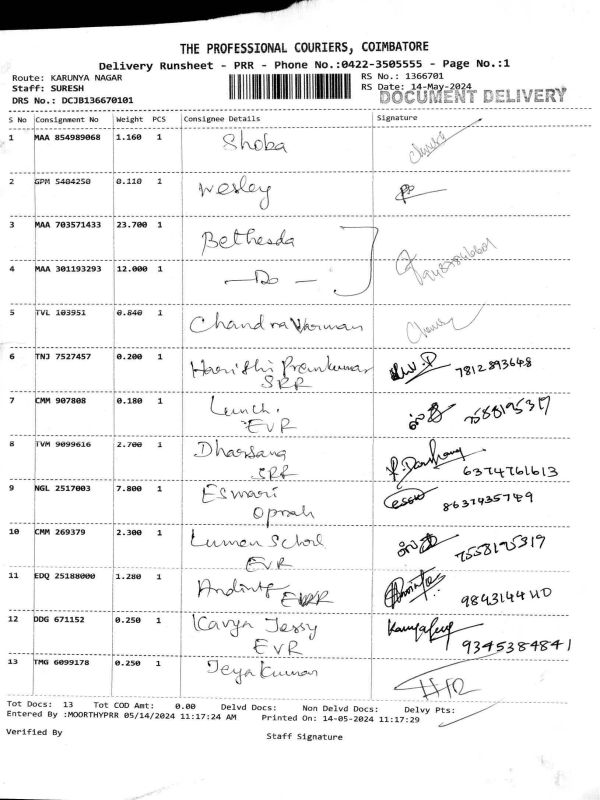 THE PROFESSIONAL COURIERS, COIMBATORE
Delivery Runsheet - PRR - Phone No.:0422-3505555 - Page No.:1
Route: KARUNYA NAGAR RS No.: 1366701
Staff: SURESH RS Date: 14-May-2024
DRS No.: DCJB136670101 DOCUMENT DELIVERY
S No Consignment No Weight PCS Consignee Details Signature
1 MAA 854989068 1.160 1 Shoba
2 GPM 5404250 0.110 1 Wesley
3 MAA 703571433 23.700 1 Bethesda
4 MAA 301193293 12.000 1 — Do —
5 TVL 103951 0.840 1 Chandra Varman
6 TNJ 7527457 0.200 1 Harishi Premkumar 7812893648
SRR
7 CMM 907808 0.180 1 7558195319
EVR
8 TVM 9099616 2.700 1 Dharsana
SRR 6374761613
9 NGL 2517003 7.800 1 Eswari 8637435749
oprah
10 CMM 269379 2.300 1 Lumen School 7558195319
EVR
11 EDQ 25188000 1.280 1 EVR 9843144110
12 DDG 671152 0.250 1 Kavya Jessy
EVR 9345384841
13 TMG 6099178 0.250 1 Jeya Kumar
Tot Docs: 13 Tot COD Amt: 0.00 Delvd Docs: Non Delvd Docs: Delvy Pts:
Entered By :MOORTHYPRR 05/14/2024 11:17:24 AM Printed On: 14-05-2024 11:17:29
Verified By Staff Signature